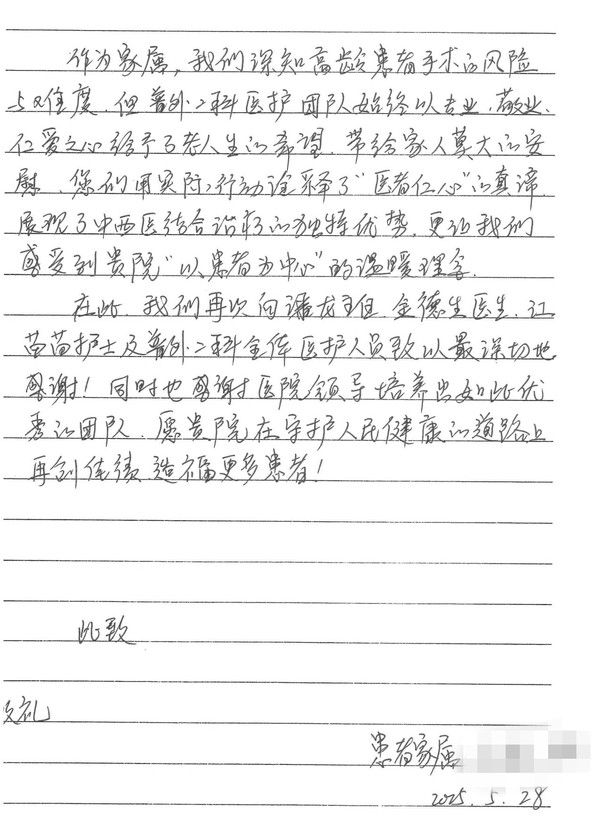 作为家属，我们深知高龄患者手术的风险
与难度，但普外二科医护团队始终以专业、敬业、
仁爱之心给予了老人生的希望，带给家人莫大的安
慰，您们用实际行动诠释了“医者仁心”的真谛
展现了中西医结合治疗的独特优势，更让我们
感受到贵院“以患者为中心”的温暖理念。
在此，我们再次向潘龙主任、金德生医生、江
苗苗护士及普外二科全体医护人员致以最深切地
感谢！同时也感谢医院领导培养出如此优
秀的团队，愿贵院在守护人民健康的道路上
再创佳绩，造福更多患者！
此致
礼
患者家属
2025.5.28